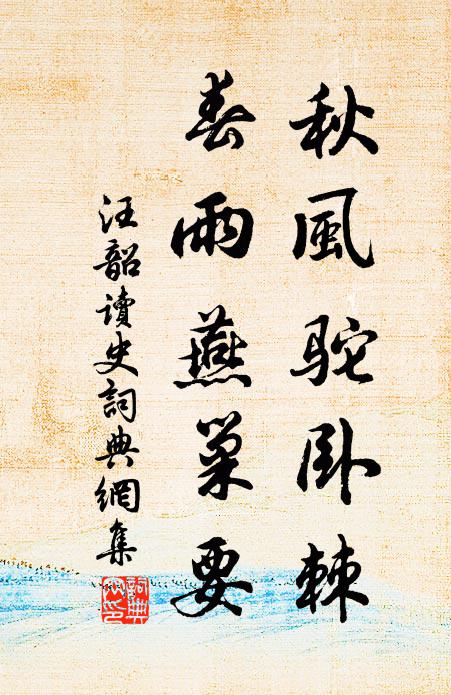 秋風駝卧棘
春雨燕巢要
汪韶讀史詞典網集